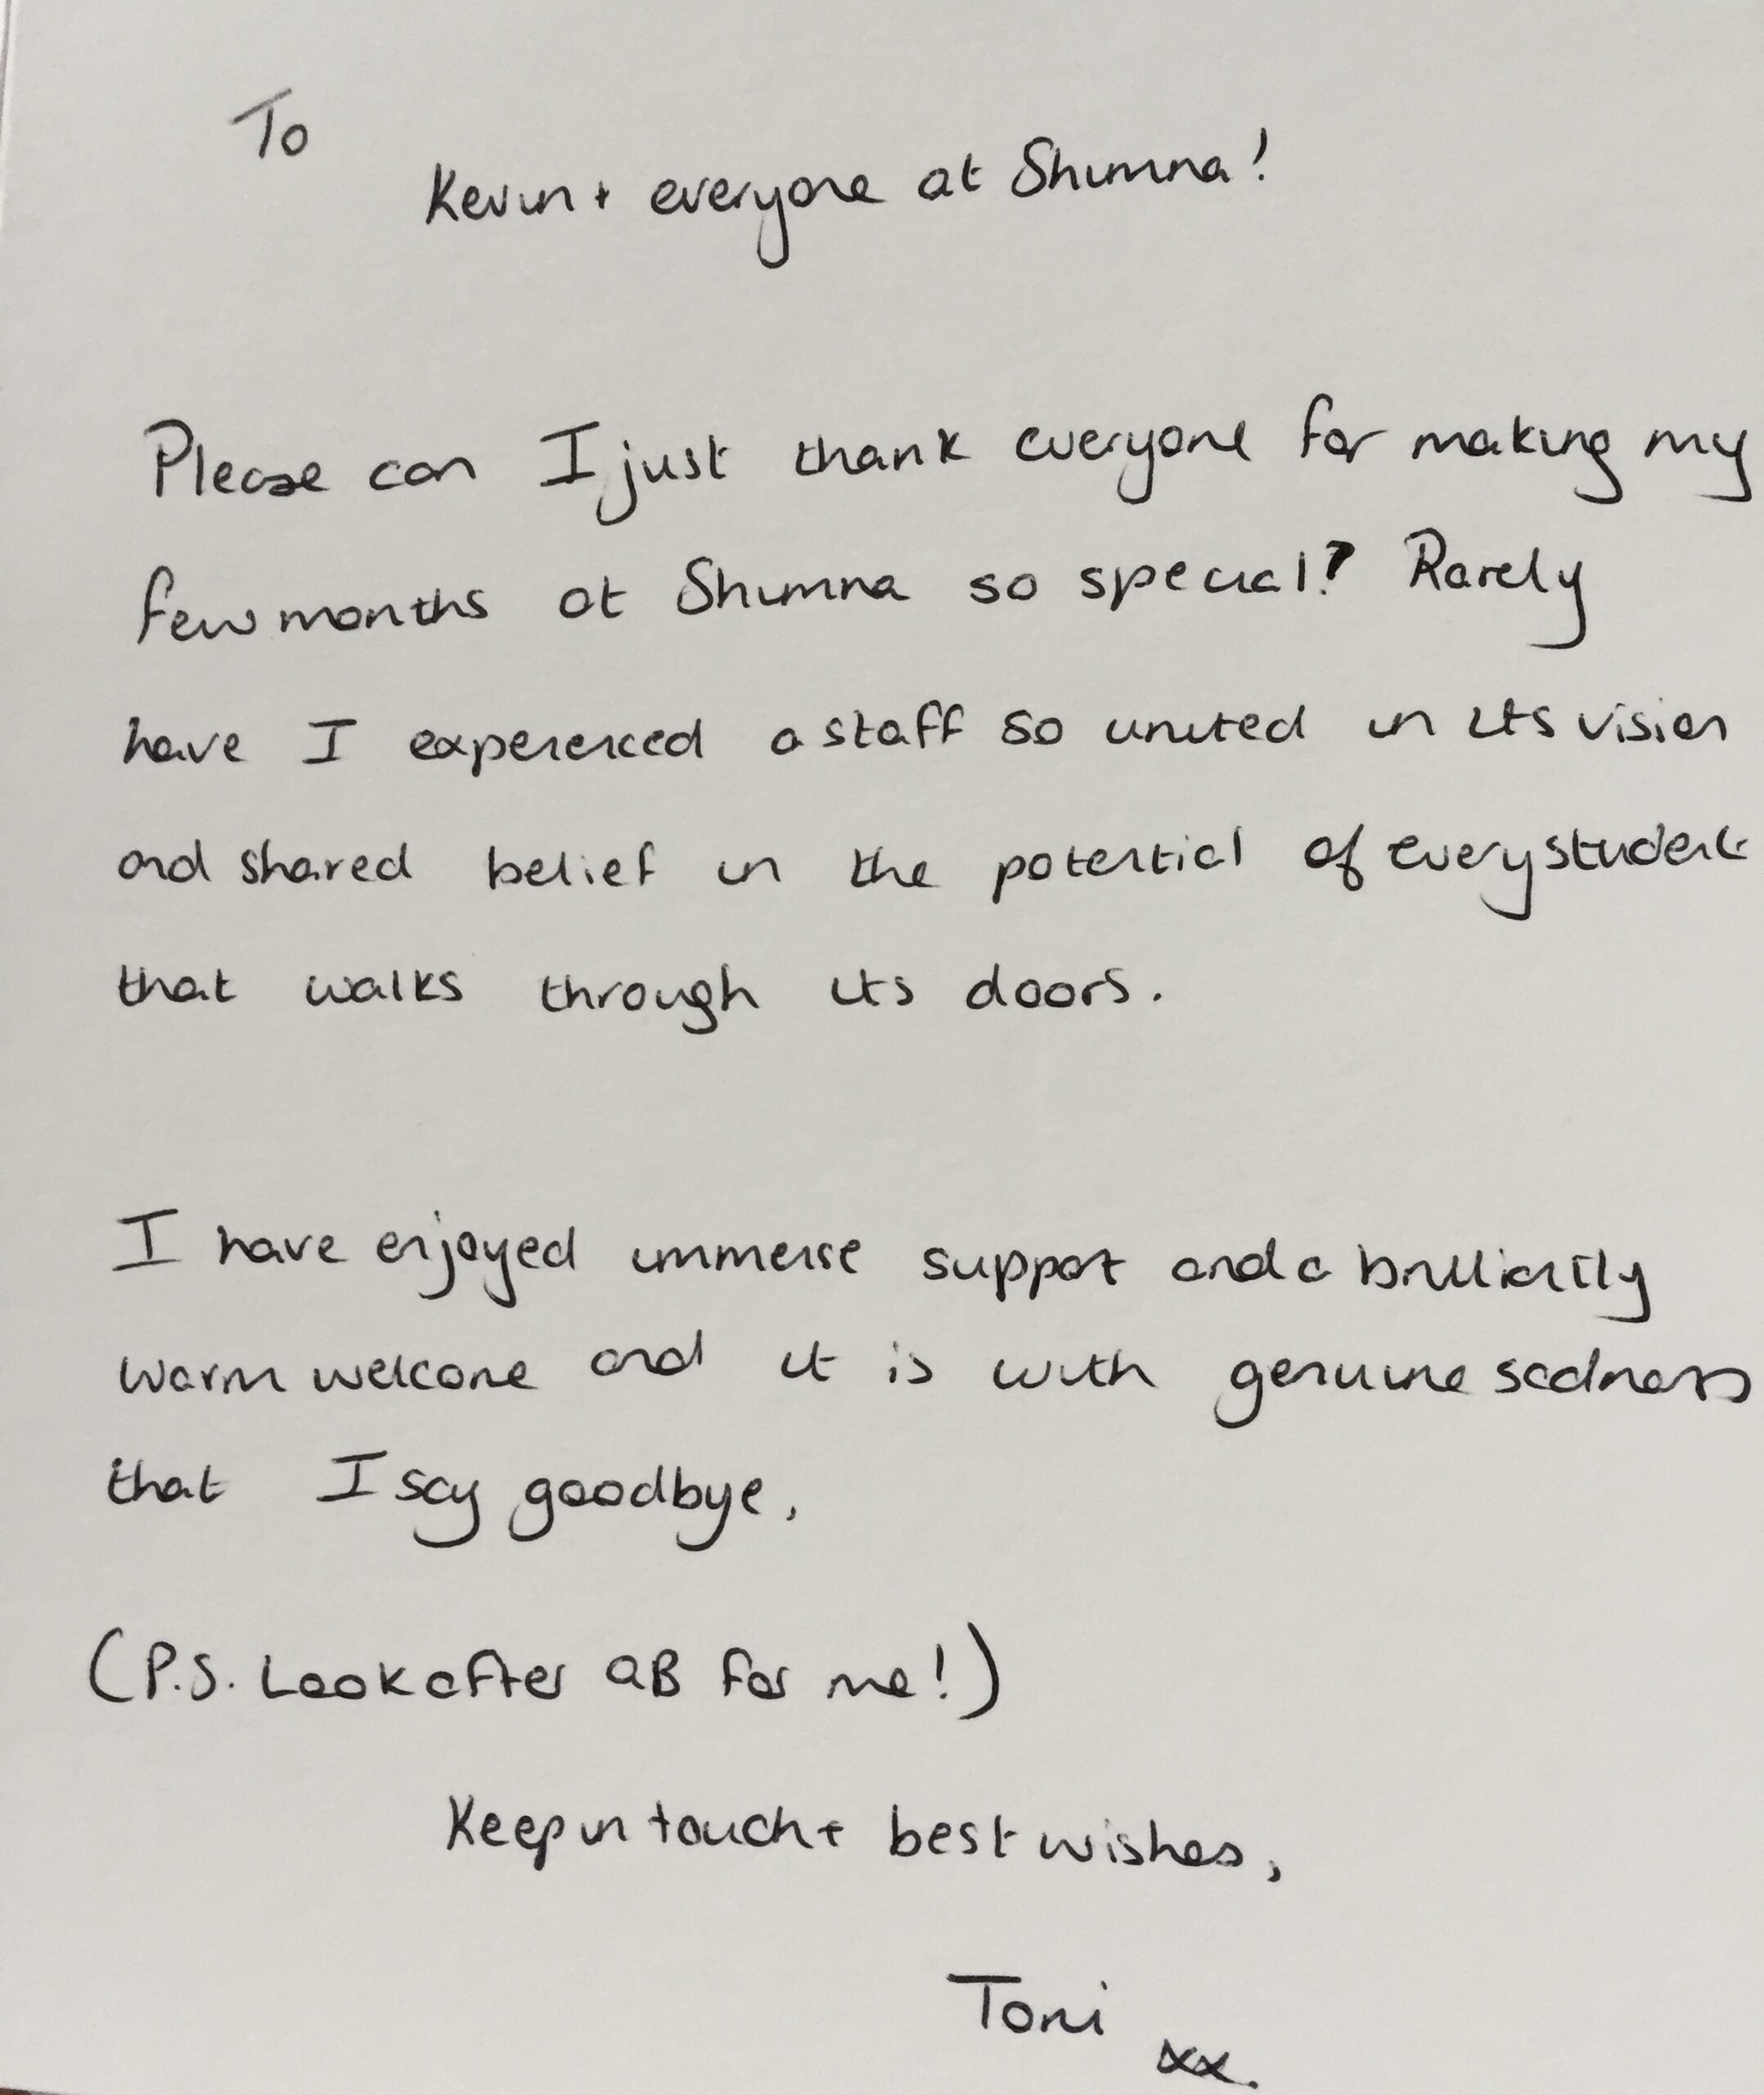 To
Kevin + everyone at Shimna!
Please can I just thank everyone for making my
few months at Shimna so special? Rarely
have I experienced a staff so united in its vision
and shared belief in the potential of every student
that walks through its doors.
I have enjoyed immense support and a brilliantly
warm welcome and it is with genuine sadness
that I say goodbye.
(P.S. Look after QB for me!)
Keep in touch + best wishes,
Toni
xx.